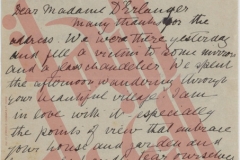 Dear Madame D'Erlanger
many thanks for the
address. We were there yesterday
and fell a victim to some mirrors
and a glass chandelier. We spent
the afternoon wandering through
your beautiful village I am
in love with it - especially
the points of view that embrace
your house and garden and